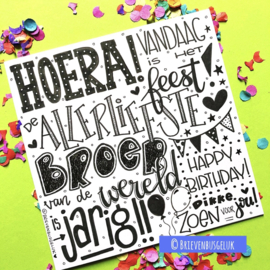 HOERA!
VANDAAG
is HET
feest!
de
ALLERLIEFSTE
BROER
van de wereld
is
jarig!!
HAPPY
BIRTHDAY!
DIKKE
ZOEN VOOR jou!
© BRIEVENBUSGELUK